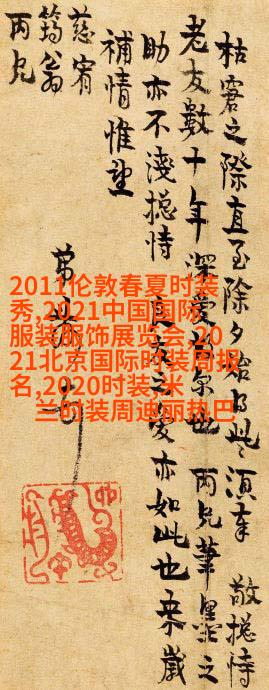 枯窘之際直至除夕始得此
老友數十年深愛 也 丙兄筆墨之
助亦不淺 之愛亦如此也 來歲
補情惟望
慈宥
筠翁
丙兄
弟
2011伦敦春夏时装
秀,2021中国国际
服装服饰展览会,20
21北京国际时装周报
名,2020时装,米
兰时装周迪丽热巴